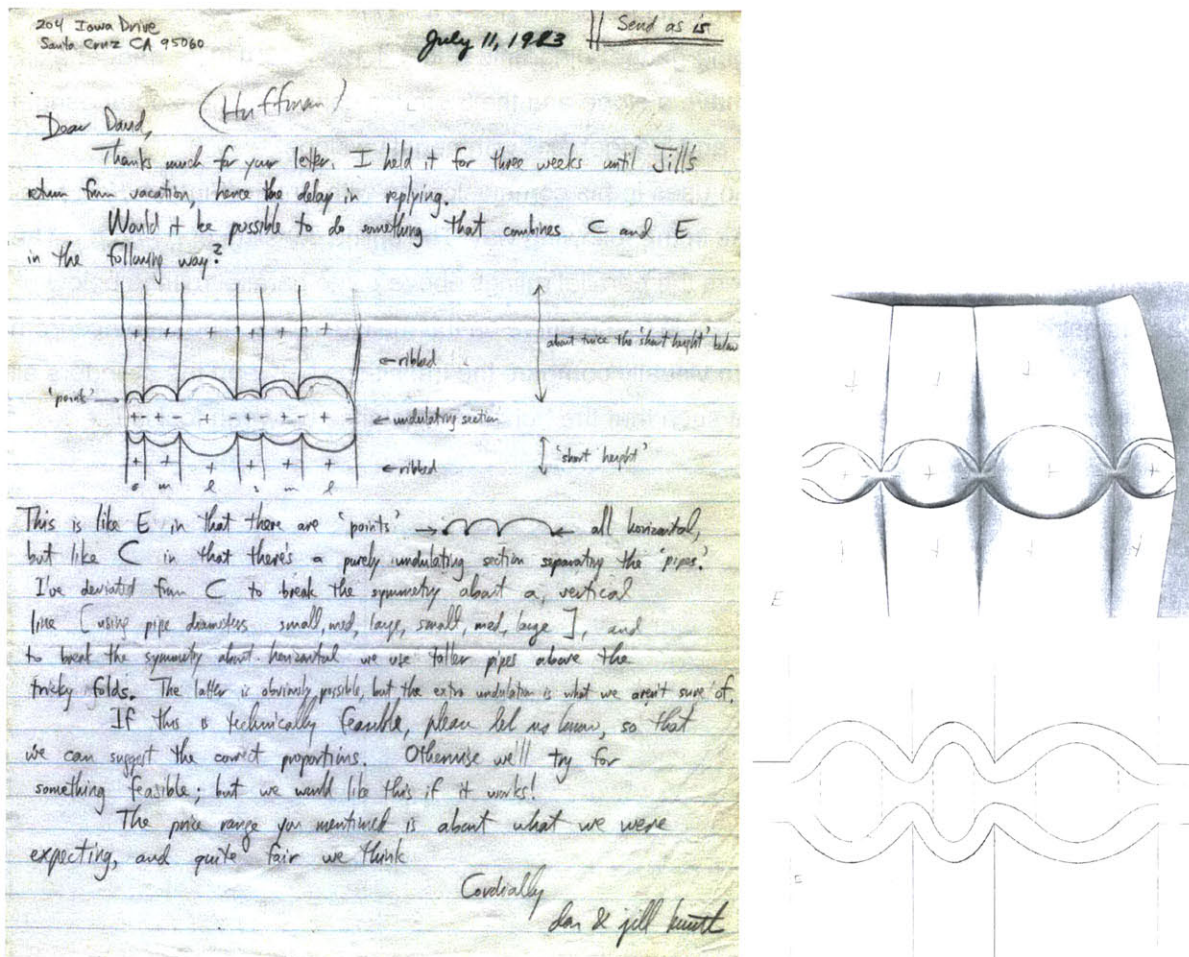 204 Iowa Drive
Santa Cruz CA 95060
July 11, 1983
Send as is
(Huffman)
Dear David,
Thanks much for your letter. I held it for three weeks until Jill's
return from vacation, hence the delay in replying.
Would it be possible to do something that combines C and E
in the following way?
+ + + + + +
about twice the 'short height' below
← ribbed
'points' →
+ - + - + - + - + - + -
← undulating section
'short height'
+ + + + + +
← ribbed
s m l s m l
This is like E in that there are 'points' → ← all horizontal,
but like C in that there's a purely undulating section separating the 'pipes'.
I've deviated from C to break the symmetry about a vertical
line [using pipe diameters small, med, large, small, med, large], and
to break the symmetry about horizontal we use taller pipes above the
tricky folds. The latter is obviously possible, but the extra undulation is what we aren't sure of.
If this is technically feasible, please let us know, so that
we can suggest the correct proportions. Otherwise we'll try for
something feasible; but we would like this if it works!
The price range you mentioned is about what we were
expecting, and quite fair we think
Cordially
don & jill knuth
E